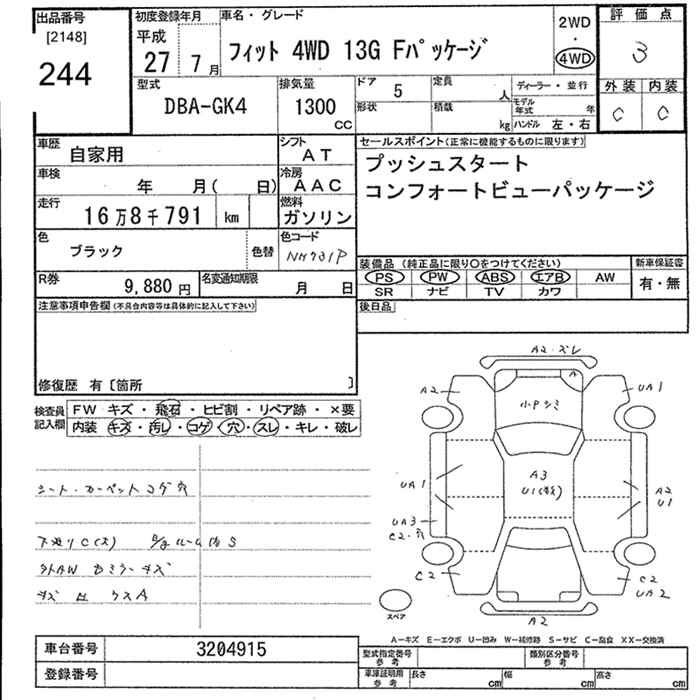 出品番号
[2148]
244
初度登録年月
平成
27 7月
車名・グレード
フィット 4WD 13G Fパッケージ
2WD
・
4WD
評価点
3
外装 内装
C C
型式
DBA-GK4
排気量
1300
CC
ドア 5
定員 人
形状
積載 kg
ディーラー・並行
モデル年式 年
ハンドル 左・右
車歴
自家用
シフト
AT
車検
年 月( 日)
冷房
AAC
走行
16万8千791 km
燃料
ガソリン
色
ブラック
色替
色コード
NH731P
R券
9,880円
名変通知期限
月 日
セールスポイント(正常に機能するものに限ります)
プッシュスタート
コンフォートビューパッケージ
装備品(純正品に限り○をつけてください)
PS PW ABS エアB AW
SR ナビ TV カワ
新車保証書
有・無
後日品
注意事項申告欄(不具合内容等は具体的に記入して下さい)
修復歴 有〔箇所 〕
検査員記入欄
FW キズ・飛石・ヒビ割・リペア跡・×要
内装・キズ・汚レ・コゲ・穴・スレ・キレ・破レ
シート・カーペットコゲ穴
キズ 凹 クスA
A2・ズレ
A2
A
UA1
小Pシミ
A3
U1
UA1
A2
U1
UA3
C2・穴
C2
C2
UA2
A2
スペア
A-キズ E-エクボ U-凹み W-補修跡 S-サビ C-腐食 XX-交換済
車台番号 3204915
登録番号
型式指定番号
参考
類別区分番号
参考
車庫証明用
参考
長さ cm
幅 cm
高さ cm